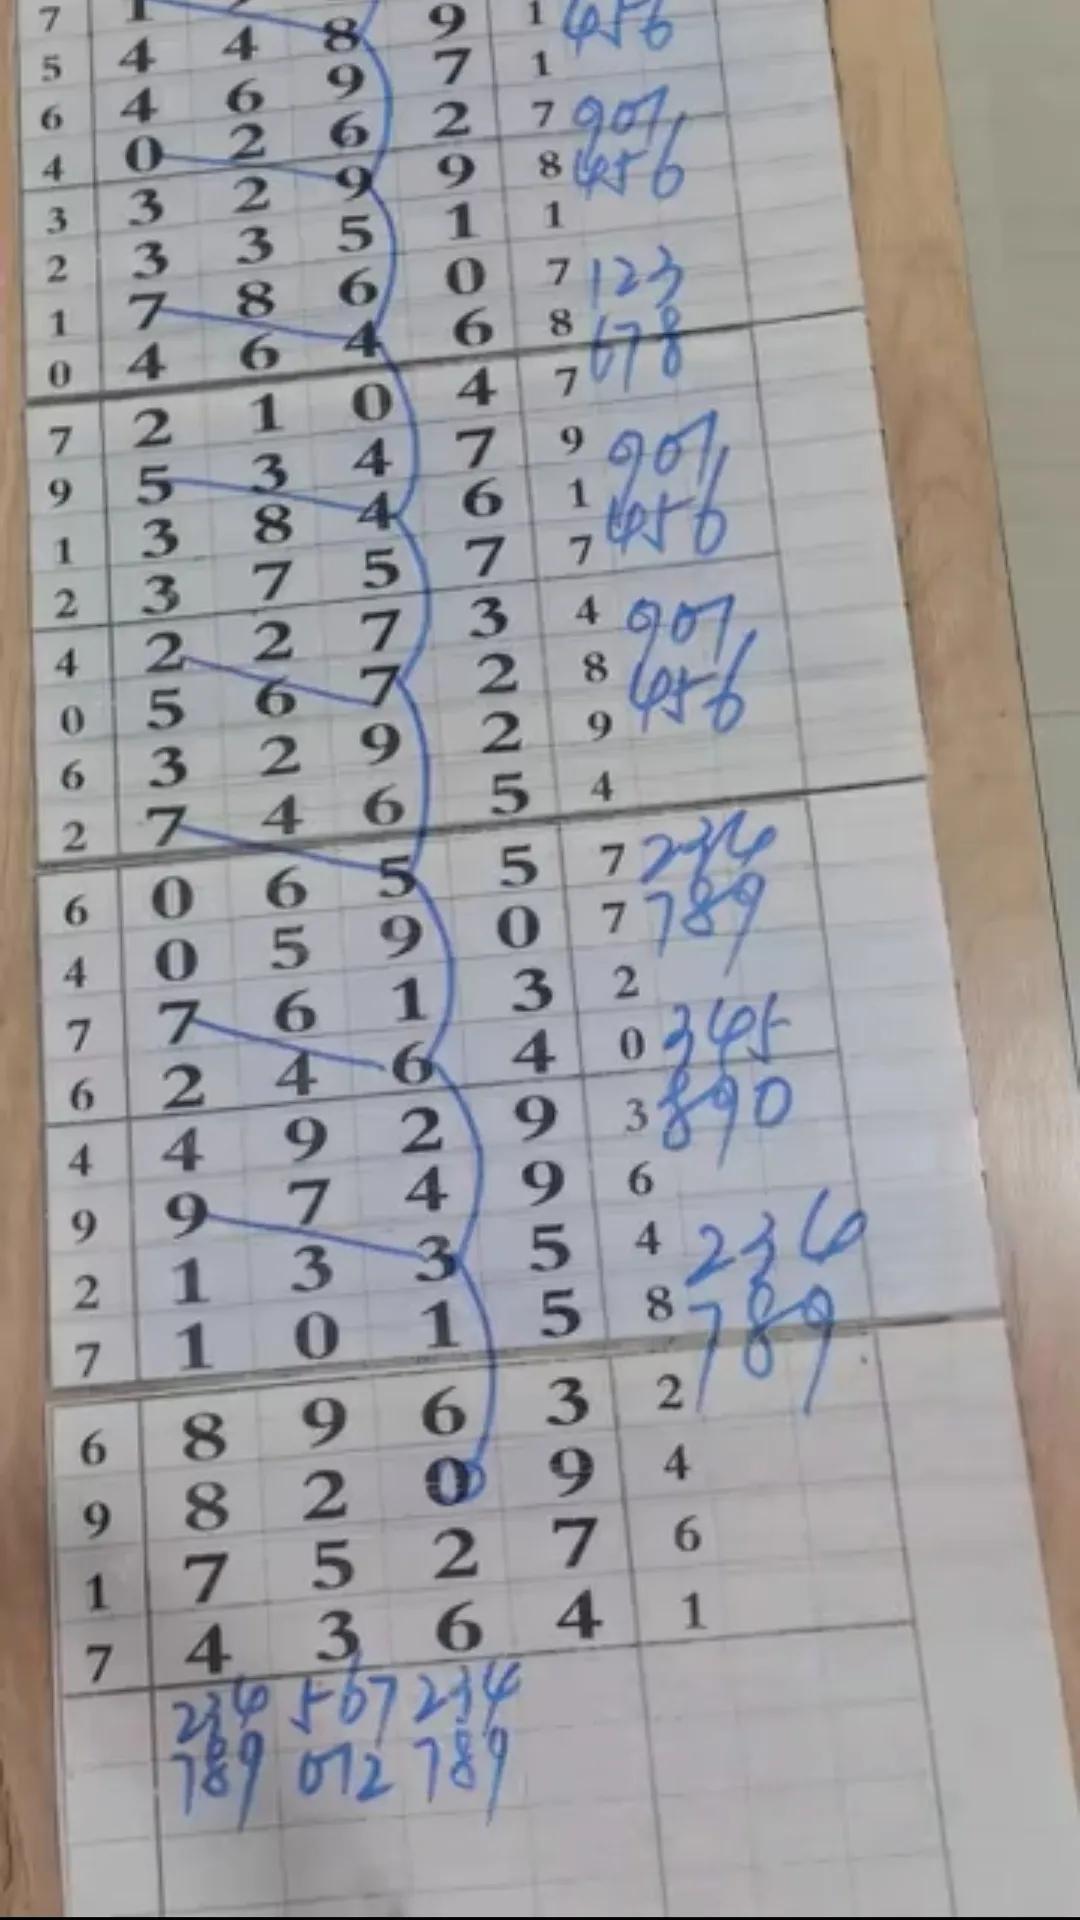 7 1
5 4 4 8 9 1 456
6 4 6 9 7 1
4 0 2 6 2 7 907
3 3 2 9 9 8 456
2 3 3 5 1 1
1 7 8 6 0 7 123
0 4 6 4 6 8 678
7 2 1 0 4 7
9 5 3 4 7 9 907
1 3 8 4 6 1 456
2 3 7 5 7 7
4 2 2 7 3 4 907
0 5 6 7 2 8 456
6 3 2 9 2 9
2 7 4 6 5 4
6 0 6 5 5 7 234
4 0 5 9 0 7 789
7 7 6 1 3 2
6 2 4 6 4 0 345
4 4 9 2 9 3 890
9 9 7 4 9 6
2 1 3 3 5 4 234
7 1 0 1 5 8 789
6 8 9 6 3 2
9 8 2 0 9 4
1 7 5 2 7 6
7 4 3 6 4 1
234 567 234
789 012 789